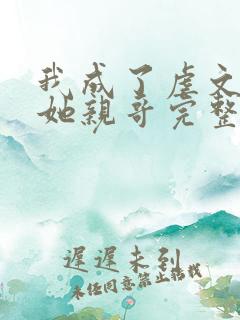 我成了虐文
她親哥完整
遲遲未到
未经同意禁止搭载